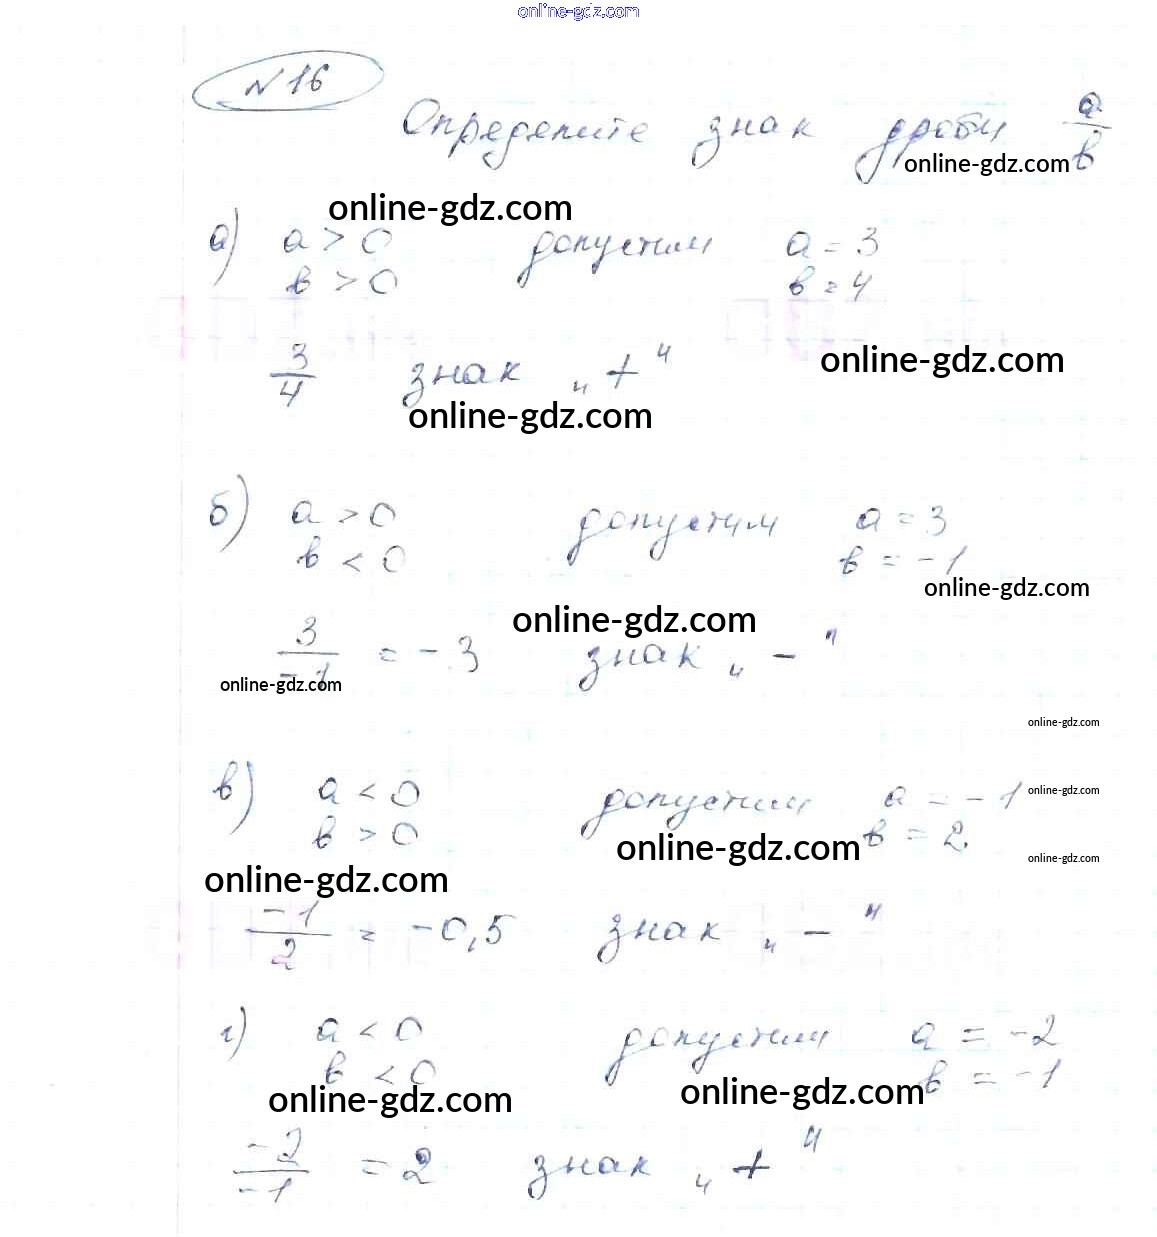 online-gdz.com
№ 16
Определите знак дроби a/b
online-gdz.com
online-gdz.com
а) a > 0 допустим a = 3
b > 0 b = 4
online-gdz.com
3/4 знак „ + "
online-gdz.com
б) a > 0 допустим a = 3
b < 0 b = -1
online-gdz.com
online-gdz.com
3/-1 = -3 знак „ - "
online-gdz.com
online-gdz.com
в) a < 0 допустим a = -1
online-gdz.com
b > 0 b = 2
online-gdz.com
online-gdz.com
online-gdz.com
-1/2 = -0,5 знак „ - "
г) a < 0 допустим a = -2
b < 0 b = -1
online-gdz.com
online-gdz.com
-2/-1 = 2 знак „ + "